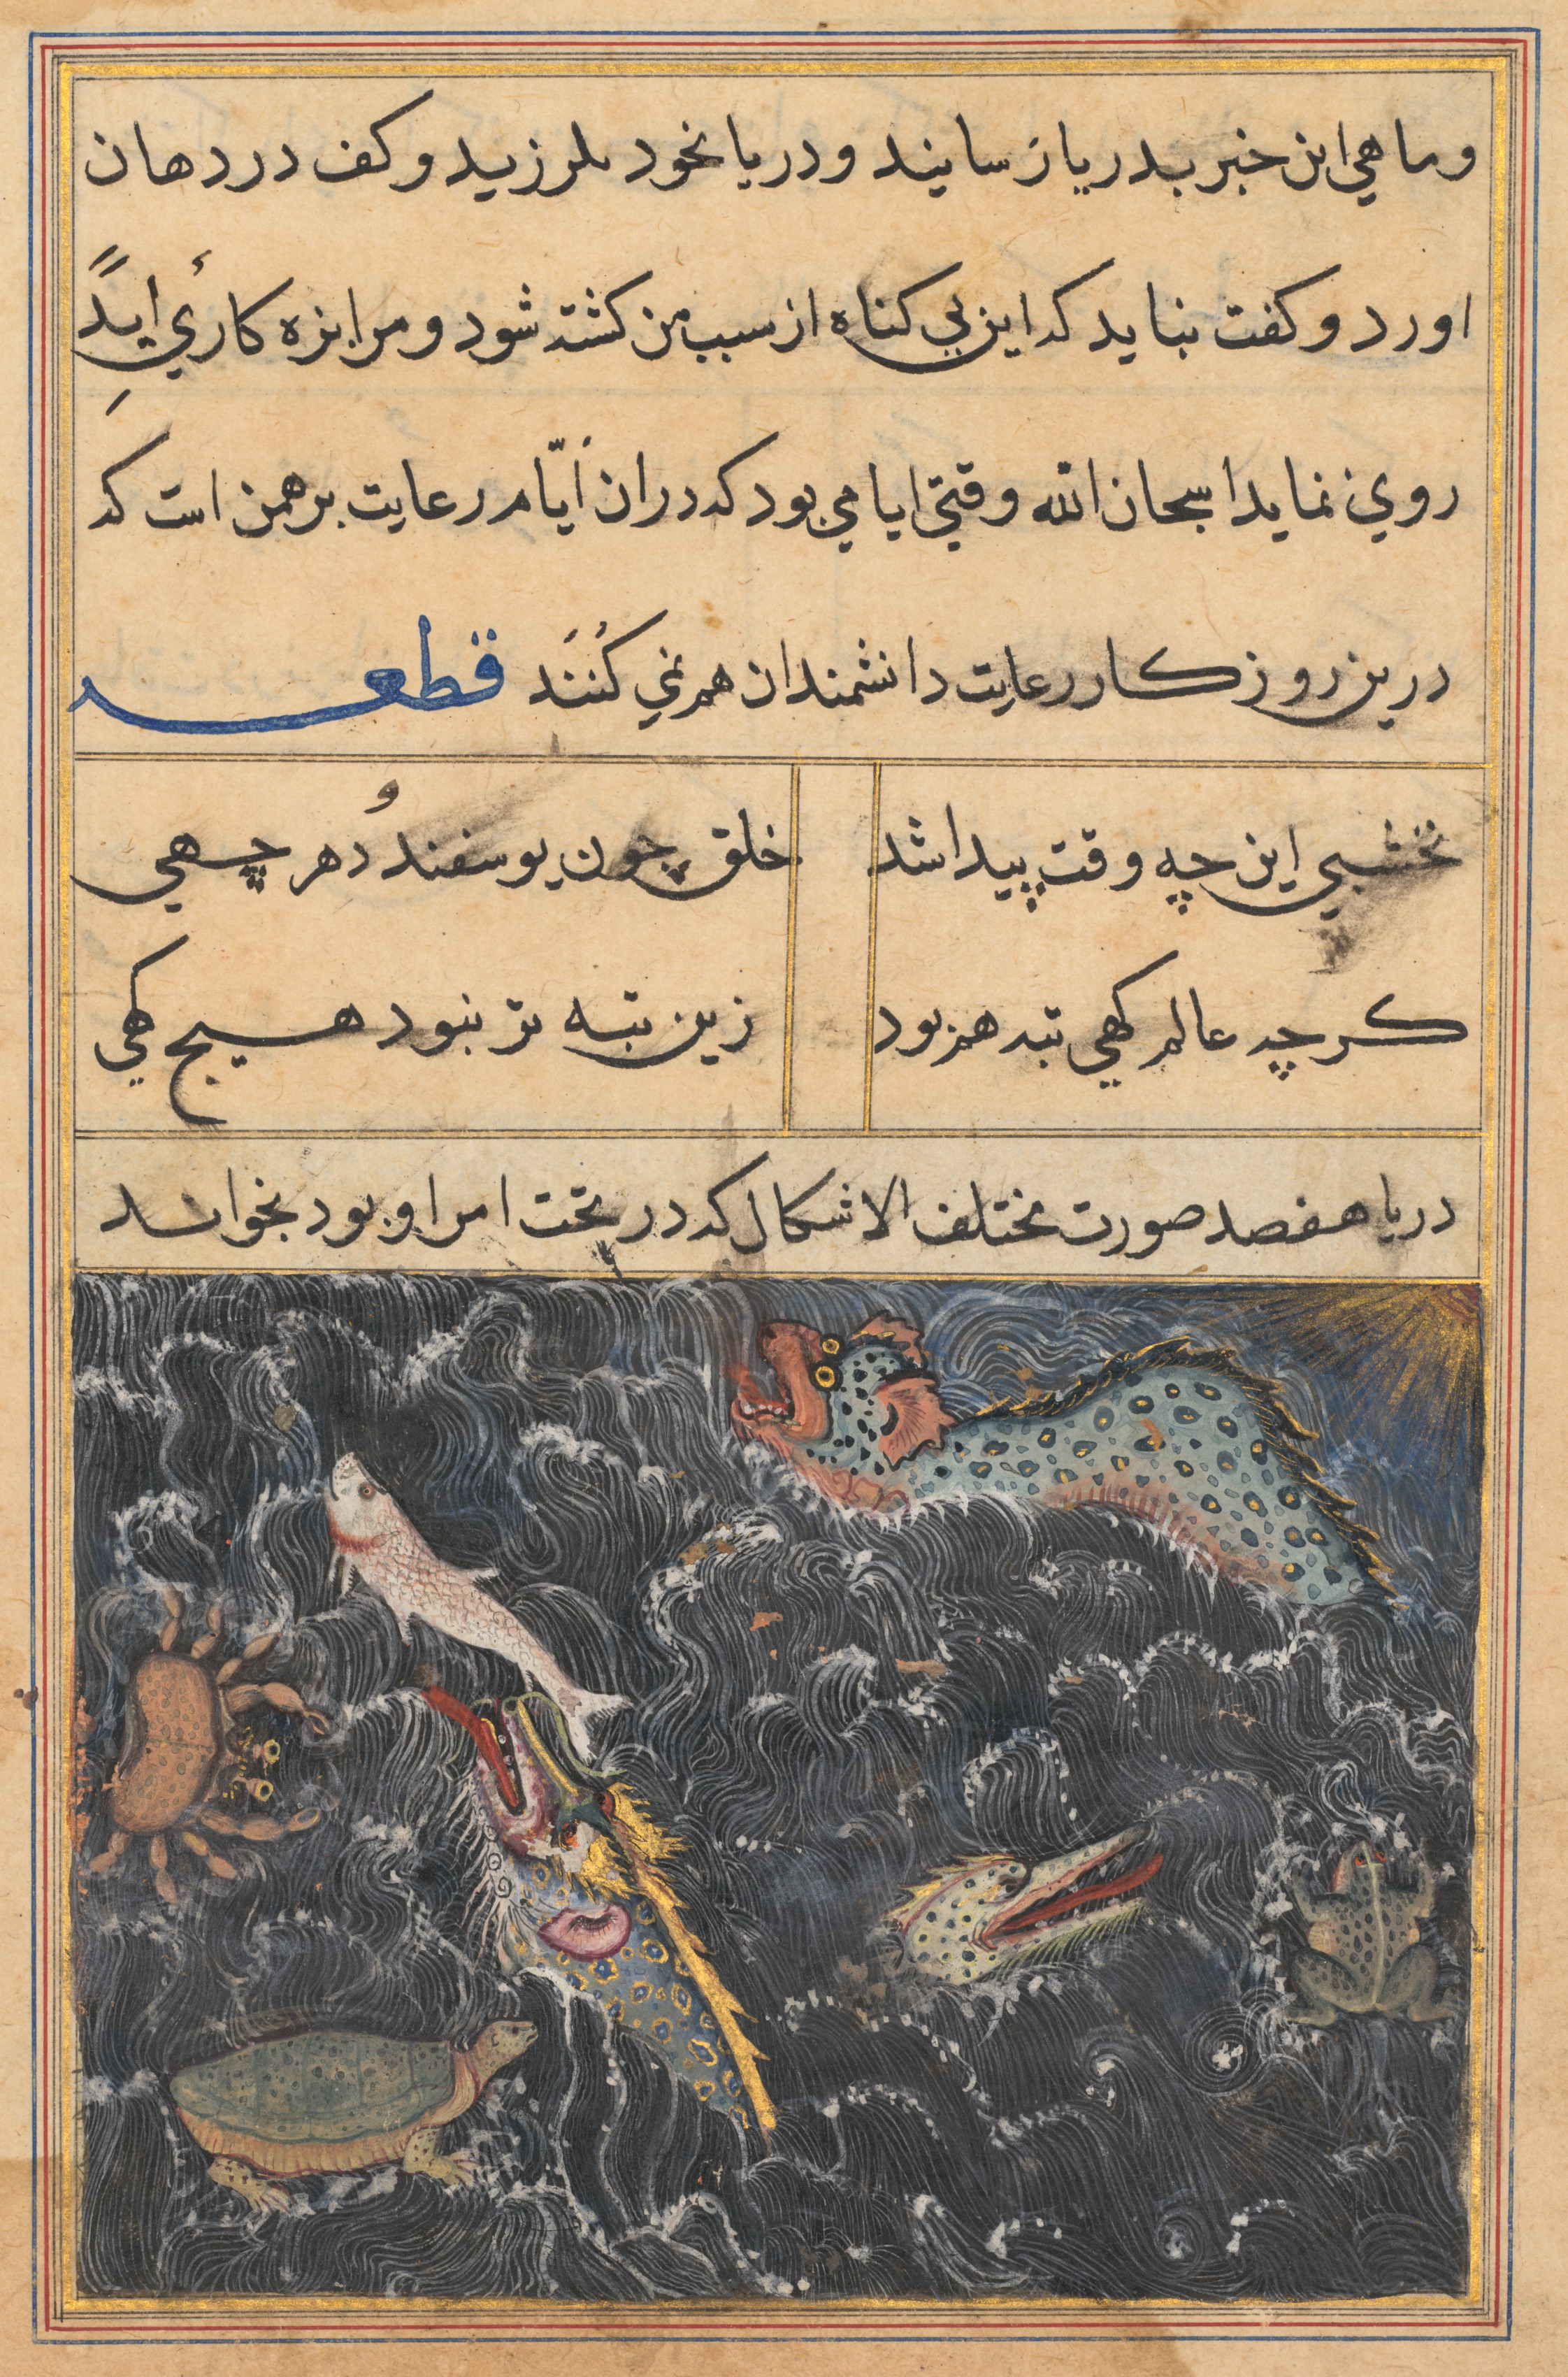 وماهي اين خبر بدريا رسانيد ودريا بخود بلرزيد وكف در دهان
اورد وكفت نبايد كه اين بي كناه از سبب من كشته شود و مرا بزه كاري ابد
روي نمايد سبحان الله وقتي ايامي بود كه دران ايّام رعايت برهمن است كه
درين روزكار رعايت دانشمندان هم نمي كُنَند قطعه
نخشبي اين چه وقت پيدا شد خلق چون يوسفند و هر چهي
كرچه عالم كهي تبه هم بود زين تبه تر نبود هيچ كهي
دريا هفصد صورت مختلف الاشكال كه در تحت امر او بود بخواند